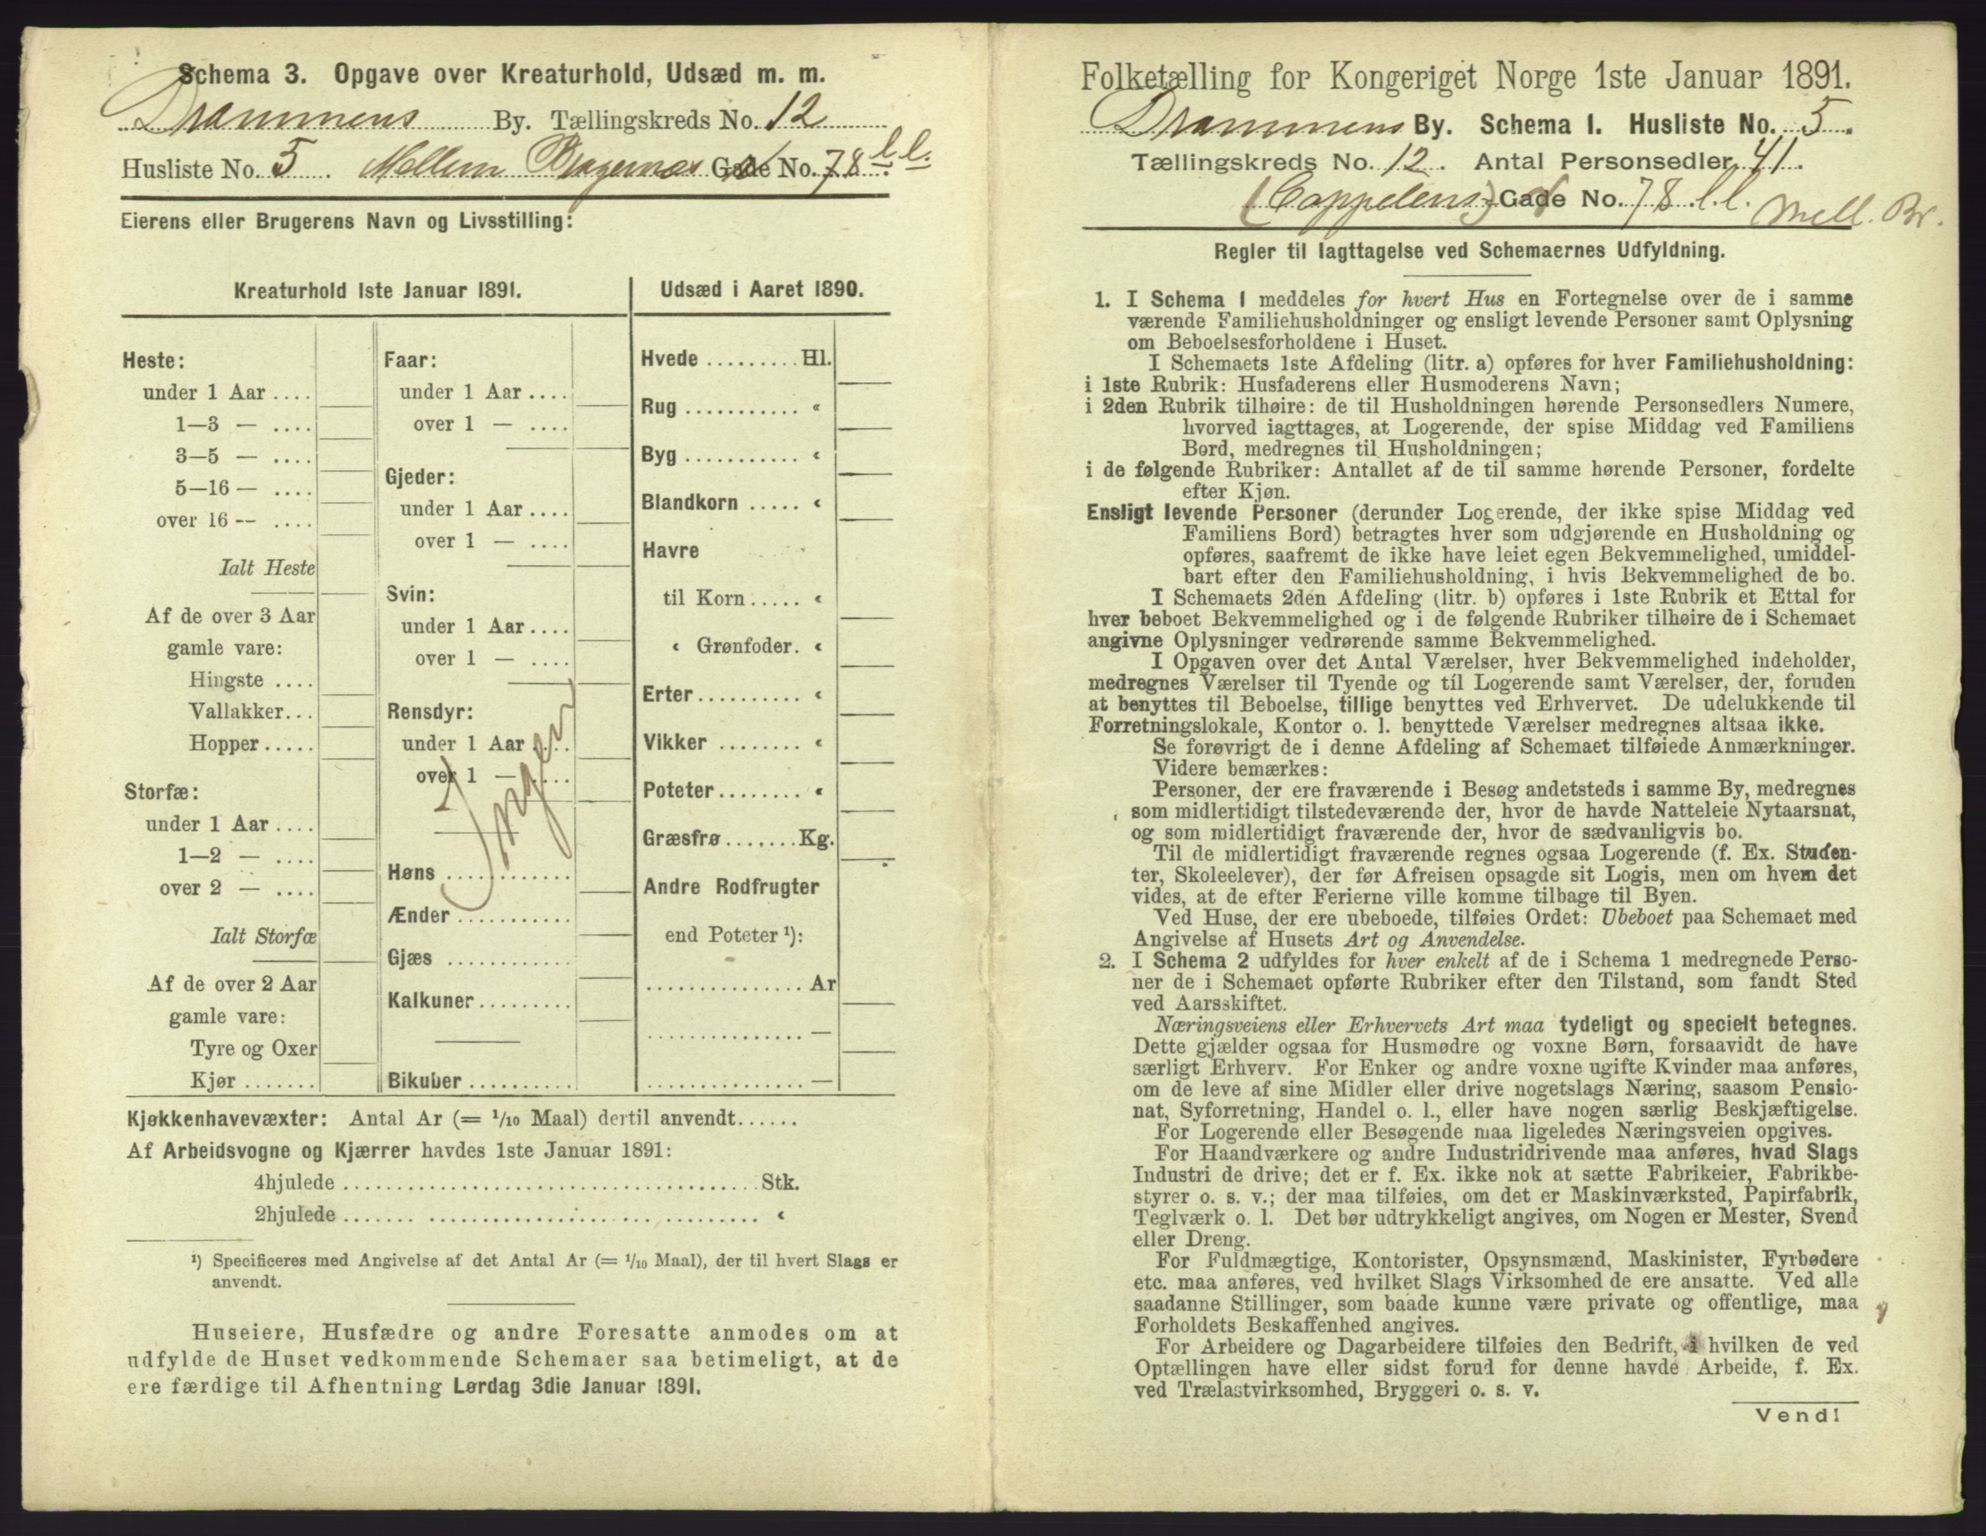 Schema 3. Opgave over Kreaturhold, Udsæd m. m.
Drammens By. Tællingskreds No. 12
Husliste No. 5 Mellem Bragernæs Gade No. 78 b.b.
Eierens eller Brugerens Navn og Livsstilling:
Kreaturhold 1ste Januar 1891.
Heste:
under 1 Aar ....
1—3 — ....
3—5 — ....
5—16 — ....
over 16 -- ....
Ialt Heste
Af de over 3 Aar
gamle vare:
Hingste ....
Vallakker...
Hopper.....
Storfæ:
under 1 Aar ....
1—2 — ....
over 2 — ....
Ialt Storfæ
Af de over 2 Aar
gamle vare:
Tyre og Oxer
Kjør.......
Faar:
under 1 Aar ....
over 1 — ....
Gjeder:
under 1 Aar ....
over 1 — ....
Svin:
under 1 Aar....
over 1 — ....
Rensdyr:
under 1 Aar ....
over 1 — ....
Ingen
Høns ............
Ænder ...........
Gjæs ............
Kalkuner.........
Bikuber ..........
Udsæd i Aaret 1890.
Hvede ......... Hl.
Rug ........... «
Byg ........... «
Blandkorn ..... «
Havre
til Korn..... «
« Grønfoder. «
Erter.......... «
Vikker ........ «
Poteter........ «
Græsfrø.......Kg.
Andre Rodfrugter
end Poteter ¹):
............... Ar
............... —
............... —
Kjøkkenhavevæxter: Antal Ar (= 1/10 Maal) dertil anvendt......
Af Arbeidsvogne og Kjærrer havdes 1ste Januar 1891:
4hjulede ........................................ Stk.
2hjulede ........................................ «
¹) Specificeres med Angivelse af det Antal Ar (= 1/10 Maal), der til hvert Slags er
anvendt.
Huseiere, Husfædre og andre Foresatte anmodes om at
udfylde de Huset vedkommende Schemaer saa betimeligt, at de
ere færdige til Afhentning Lørdag 3die Januar 1891.
Folketælling for Kongeriget Norge 1ste Januar 1891.
Drammens By. Schema 1. Husliste No. 5.
Tællingskreds No. 12. Antal Personsedler 41.
(Cappelens) Gade No. 78 b.b. Mell. Br.
Regler til Iagttagelse ved Schemaernes Udfyldning.
1. I Schema 1 meddeles for hvert Hus en Fortegnelse over de i samme
værende Familiehusholdninger og ensligt levende Personer samt Oplysning
om Beboelsesforholdene i Huset.
I Schemaets 1ste Afdeling (litr. a) opføres for hver Familiehusholdning:
i 1ste Rubrik: Husfaderens eller Husmoderens Navn;
i 2den Rubrik tilhøire: de til Husholdningen hørende Personsedlers Numere,
hvorved iagttages, at Logerende, der spise Middag ved Familiens
Bord, medregnes til Husholdningen;
i de følgende Rubriker: Antallet af de til samme hørende Personer, fordelte
efter Kjøn.
Ensligt levende Personer (derunder Logerende, der ikke spise Middag ved
Familiens Bord) betragtes hver som udgjørende en Husholdning og
opføres, saafremt de ikke have leiet egen Bekvemmelighed, umiddel-
bart efter den Familiehusholdning, i hvis Bekvemmelighed de bo.
I Schemaets 2den Afdeling (litr. b) opføres i 1ste Rubrik et Ettal for
hver beboet Bekvemmelighed og i de følgende Rubriker tilhøire de i Schemaet
angivne Oplysninger vedrørende samme Bekvemmelighed.
I Opgaven over det Antal Værelser, hver Bekvemmelighed indeholder,
medregnes Værelser til Tyende og til Logerende samt Værelser, der, foruden
at benyttes til Beboelse, tillige benyttes ved Erhvervet. De udelukkende til
Forretningslokale, Kontor o. l. benyttede Værelser medregnes altsaa ikke.
Se forøvrigt de i denne Afdeling af Schemaet tilføiede Anmærkninger.
Videre bemærkes:
Personer, der ere fraværende i Besøg andetsteds i samme By, medregnes
som midlertidigt tilstedeværende der, hvor de havde Natteleie Nytaarsnat,
og som midlertidigt fraværende der, hvor de sædvanligvis bo.
Til de midlertidigt fraværende regnes ogsaa Logerende (f. Ex. Studen-
ter, Skoleelever), der før Afreisen opsagde sit Logis, men om hvem det
vides, at de efter Ferierne ville komme tilbage til Byen.
Ved Huse, der ere ubeboede, tilføies Ordet: Ubeboet paa Schemaet med
Angivelse af Husets Art og Anvendelse.
2. I Schema 2 udfyldes for hver enkelt af de i Schema 1 medregnede Perso-
ner de i Schemaet opførte Rubriker efter den Tilstand, som fandt Sted
ved Aarsskiftet.
Næringsveiens eller Erhvervets Art maa tydeligt og specielt betegnes.
Dette gjælder ogsaa for Husmødre og voxne Børn, forsaavidt de have
særligt Erhverv. For Enker og andre voxne ugifte Kvinder maa anføres,
om de leve af sine Midler eller drive nogetslags Næring, saasom Pensio-
nat, Syforretning, Handel o. l., eller have nogen særlig Beskjæftigelse.
For Logerende eller Besøgende maa ligeledes Næringsveien opgives.
For Haandværkere og andre Industridrivende maa anføres, hvad Slags
Industri de drive; det er f. Ex. ikke nok at sætte Fabrikeier, Fabrikbe-
styrer o. s. v.; der maa tilføies, om det er Maskinværksted, Papirfabrik,
Teglværk o. l. Det bør udtrykkeligt angives, om Nogen er Mester, Svend
eller Dreng.
For Fuldmægtige, Kontorister, Opsynsmænd, Maskinister, Fyrbødere
etc. maa anføres, ved hvilket Slags Virksomhed de ere ansatte. Ved alle
saadanne Stillinger, som baade kunne være private og offentlige, maa
Forholdets Beskaffenhed angives.
For Arbeidere og Dagarbeidere tilføies den Bedrift, i hvilken de ved
Optællingen have eller sidst forud for denne havde Arbeide, f. Ex.
ved Trælastvirksomhed, Bryggeri o. s. v.
Vend!